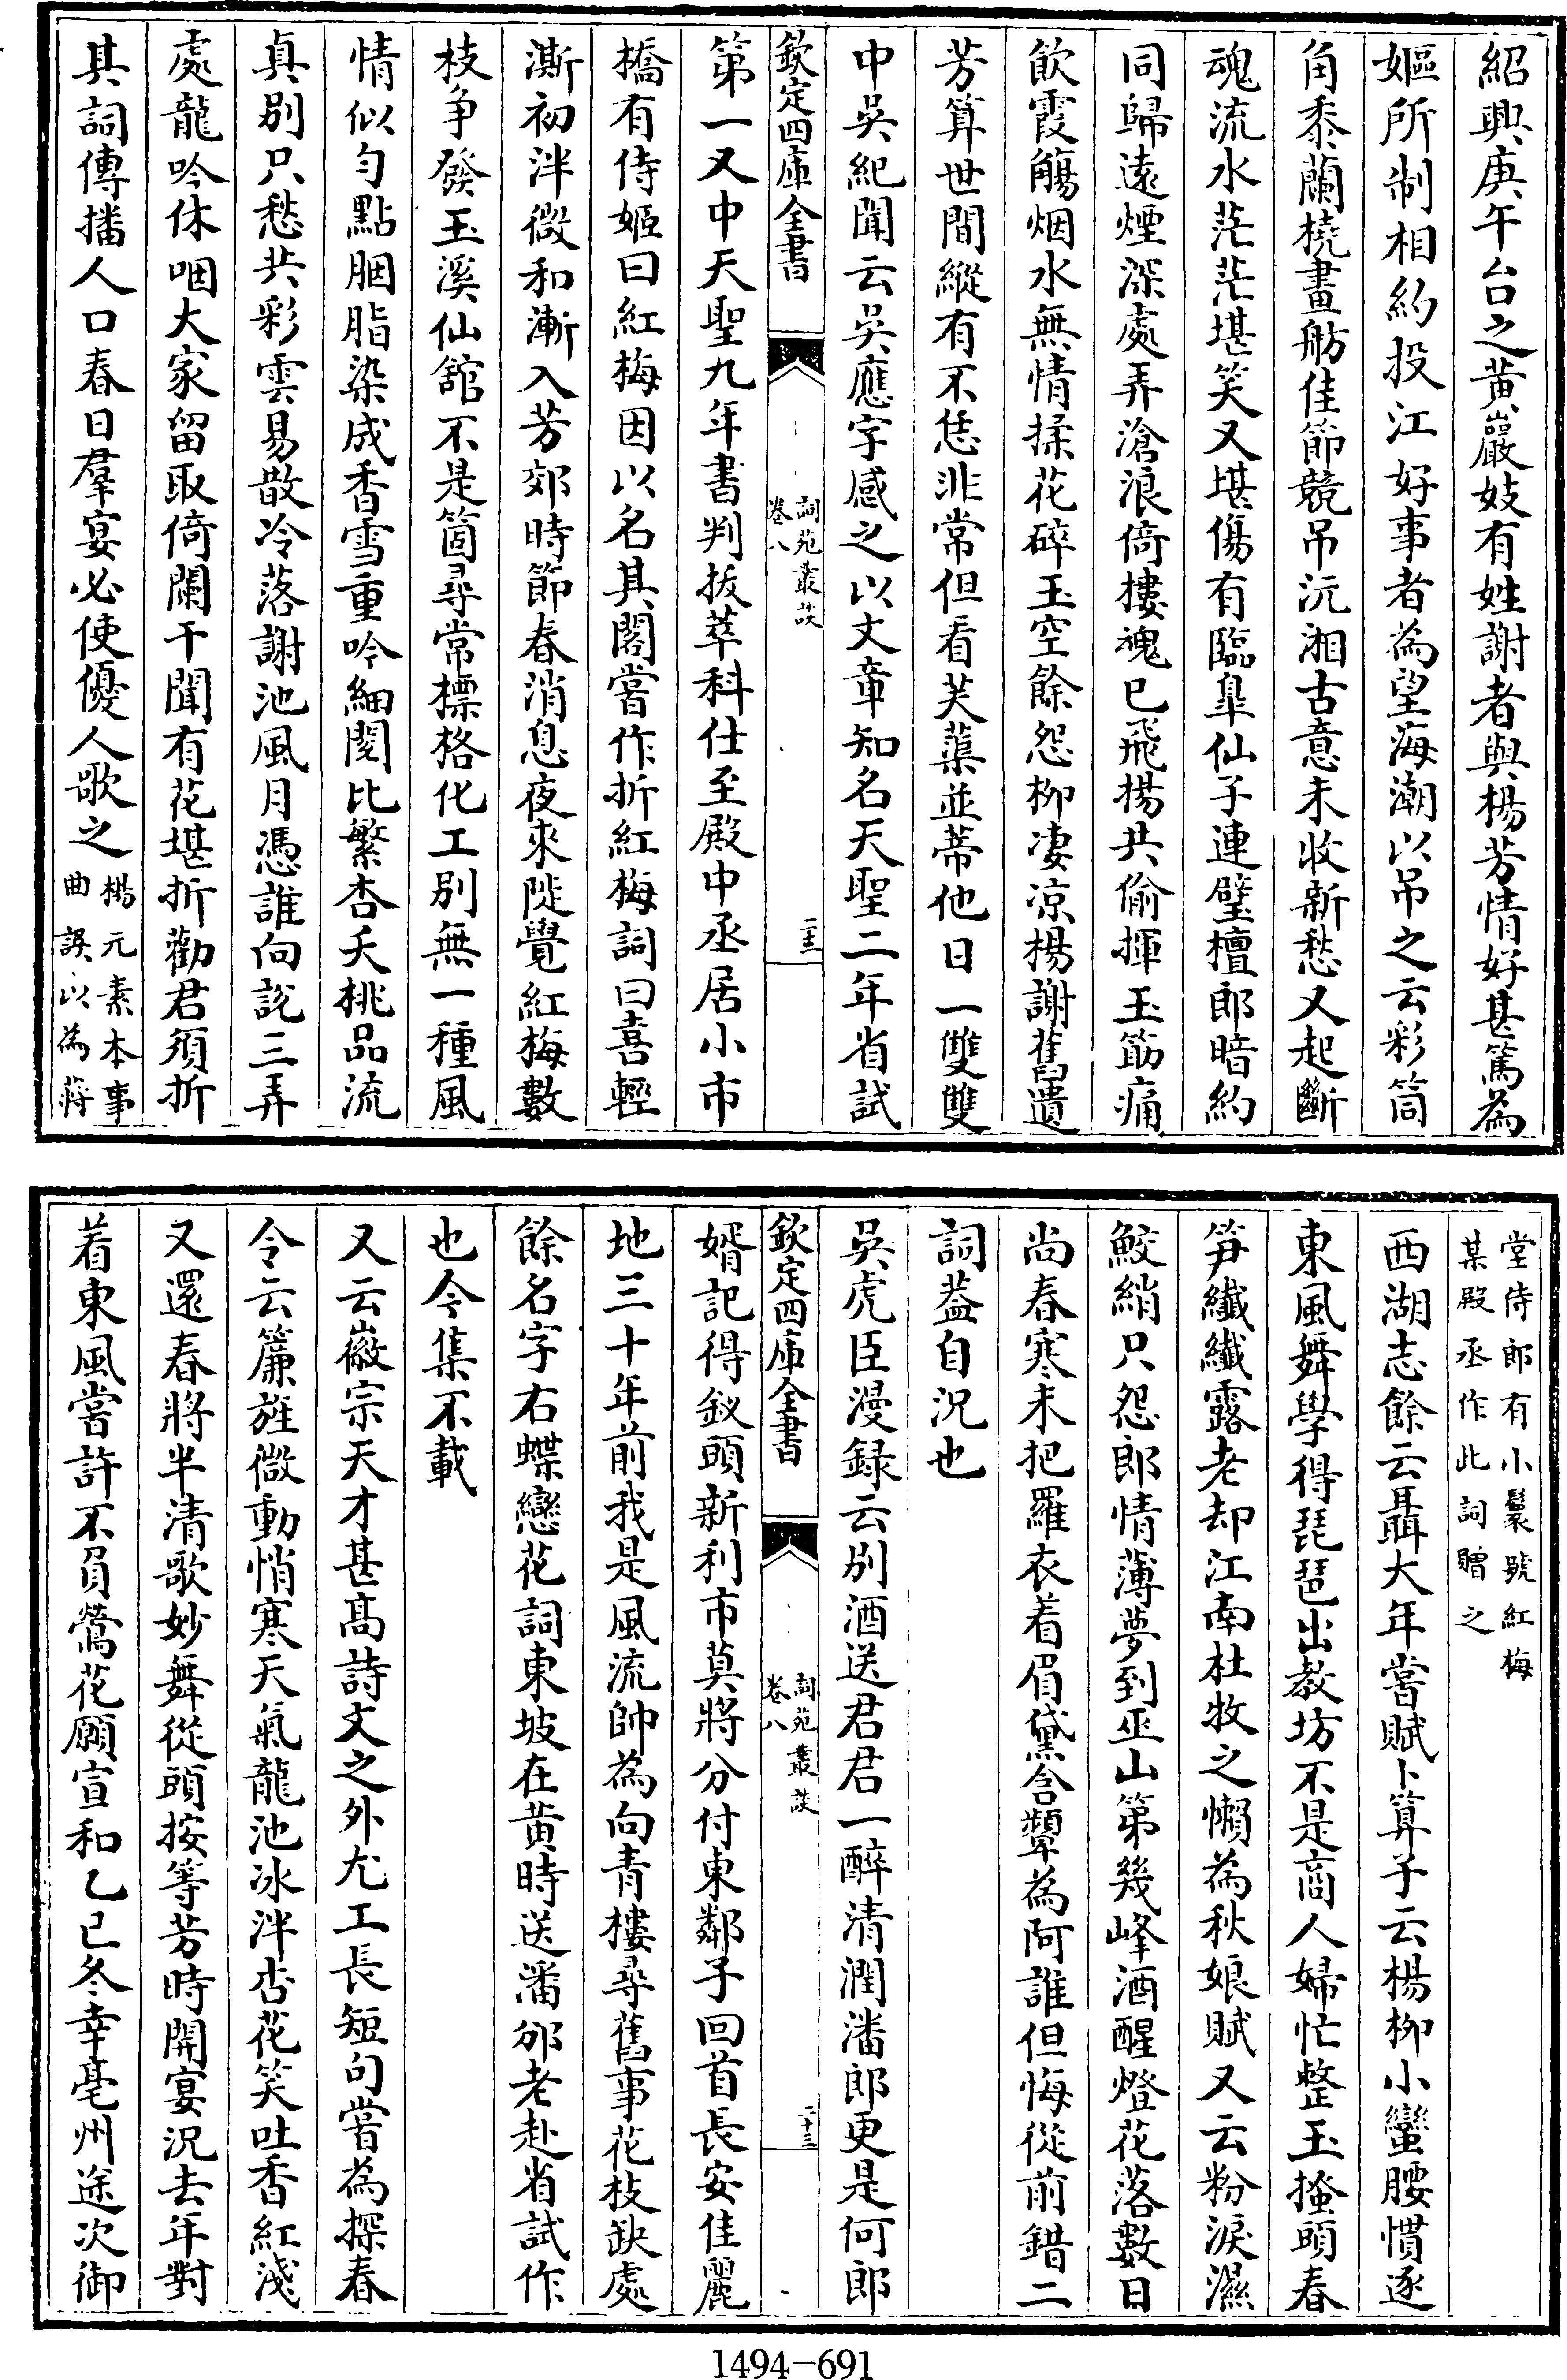 紹興庚午台之黃巖妓有姓謝者與楊芳情好甚篤為
嫗所制相約投江好事者為望海潮以弔之云彩筒
角黍蘭橈畫舫佳節競吊沅湘古意未收新愁又起斷
魂流水茫茫堪笑又堪傷有臨臯仙子連璧檀郎暗約
同歸遠煙深處弄滄浪倚樓魂已飛揚共偷揮玉筯痛
飲霞觴烟水無情揉花碎玉空餘怨柳凄凉楊謝舊遺
芳算世間縱有不恁非常但看芙蕖並蒂他日一雙雙
中吳紀聞云吳應字感之以文章知名天聖二年省試
欽定四庫全書
詞苑叢談
卷八
二十二
第一又中天聖九年書判拔萃科仕至殿中丞居小市
橋有侍姬曰紅梅因以名其閣嘗作折紅梅詞曰喜輕
澌初泮微和漸入芳郊時節春消息夜來陡覺紅梅數
枝争發玉溪仙舘不是箇尋常標格化工别無一種風
情似勻點胭脂染成香雪重吟細閱比繁杏夭桃品流
真别只愁共彩雲易散冷落謝池風月憑誰向說三弄
處龍吟休咽大家留取倚闌干聞有花堪折勸君須折
其詞傳播人口春日羣宴必使優人歌之楊元素本事
曲誤以為蔣
堂侍郎有小鬟號紅梅
某殿丞作此詞贈之
西湖志餘云聶大年嘗賦卜算子云楊柳小蠻腰慣逐
東風舞學得琵琶出教坊不是商人婦忙整玉搔頭春
笋纖纖露老却江南杜牧之懶為秋娘賦又云粉淚濕
鮫綃只怨郎情薄夢到巫山第幾峰酒醒燈花落數日
尚春寒未把羅衣着眉黛含顰為阿誰但悔從前錯二
詞蓋自況也
吳虎臣漫録云别酒送君君一醉清潤潘郎更是何郎
欽定四庫全書
詞苑叢談
卷八
二十三
婿記得釵頭新利市莫將分付東鄰子回首長安佳麗
地三十年前我是風流帥為向青樓尋舊事花枝缺處
餘名字右蝶戀花詞東坡在黄時送潘邠老赴省試作
也今集不載
又云徽宗天才甚髙詩文之外尤工長短句嘗為探春
令云簾旌微動悄寒天氣龍池冰泮杏花笑吐香紅淺
又還春將半清歌妙舞從頭按等芳時開宴況去年對
着東風嘗許不負鶯花願宣和乙巳冬幸亳州途次御
1494-691